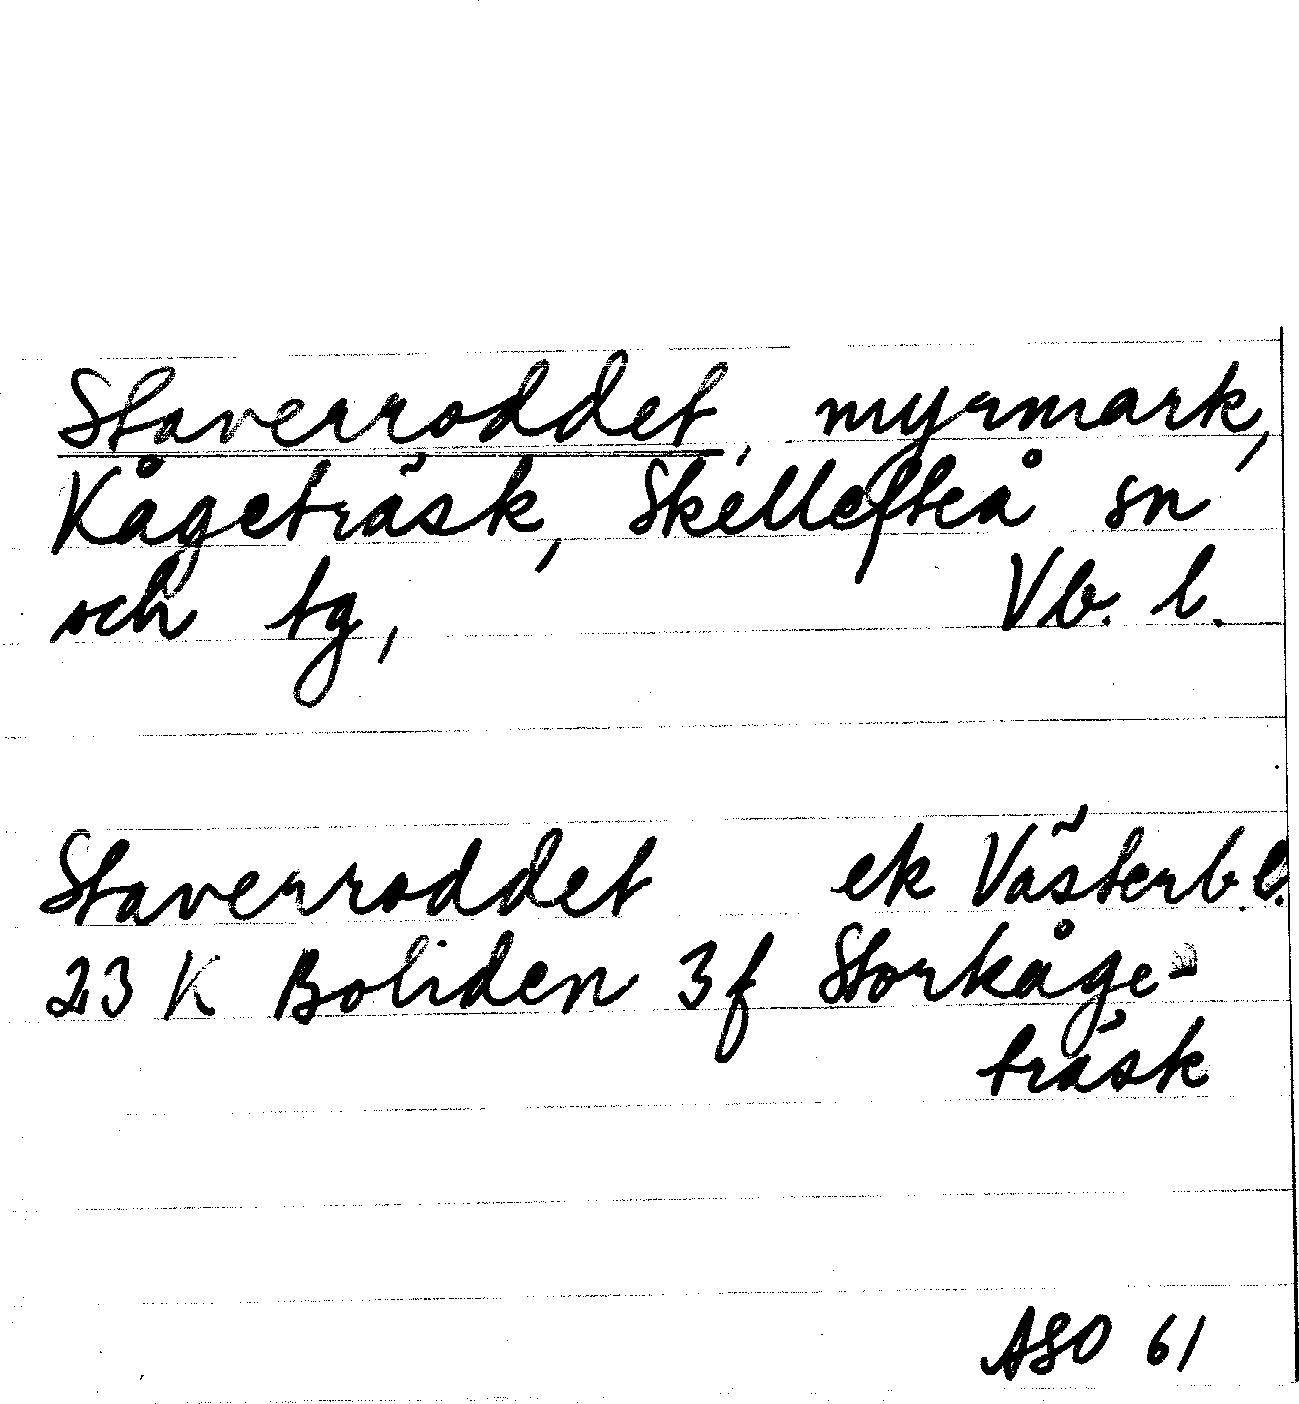 Staverroddet, myrmark,
Kågeträsk, Skellefteå sn
och tg, Vb. l.
Staverroddet ek Västerb. l.
23 K Boliden 3f Storkåge-
träsk
ASO 61